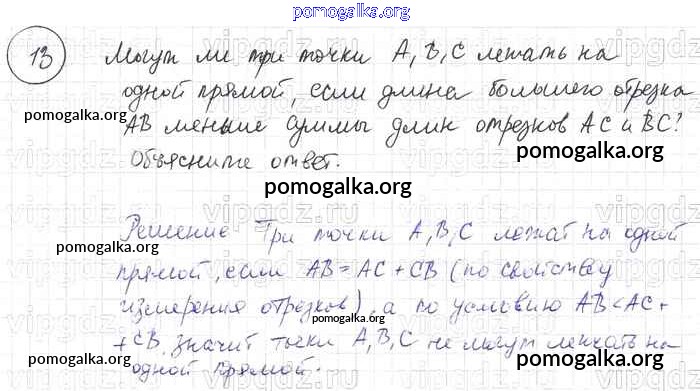 pomogalka.org
13 Могут ли три точки A, B, C лежать на
одной прямой, если длина большего отрезка
pomogalka.org
AB меньше суммы длин отрезков AC и BC?
pomogalka.org
Объясните ответ.
pomogalka.org
Решение Три точки A, B, C лежат на одной
pomogalka.org
прямой, если AB = AC + CB (по свойству
измерения отрезков), а по условию AB < AC +
pomogalka.org
+ CB, значит точки A, B, C не могут лежать на
pomogalka.org
pomogalka.org
одной прямой.